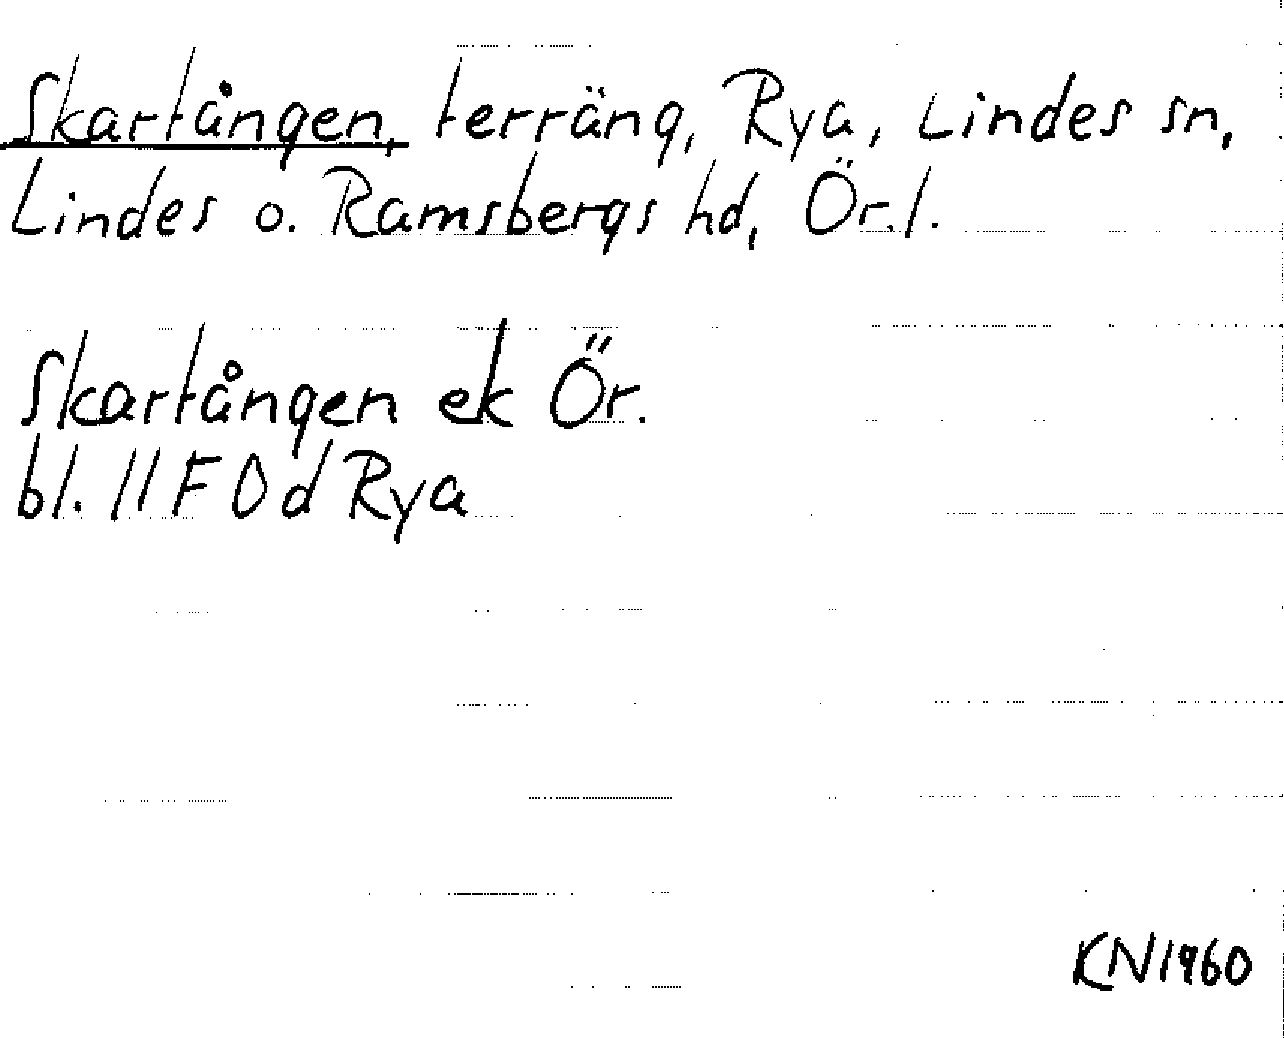 Skartången, terräng, Rya, Lindes sn,
Lindes o. Ramsbergs hd, Ör. l.
Skartången ek Ör.
bl. 11F 0d Rya
KN 1960